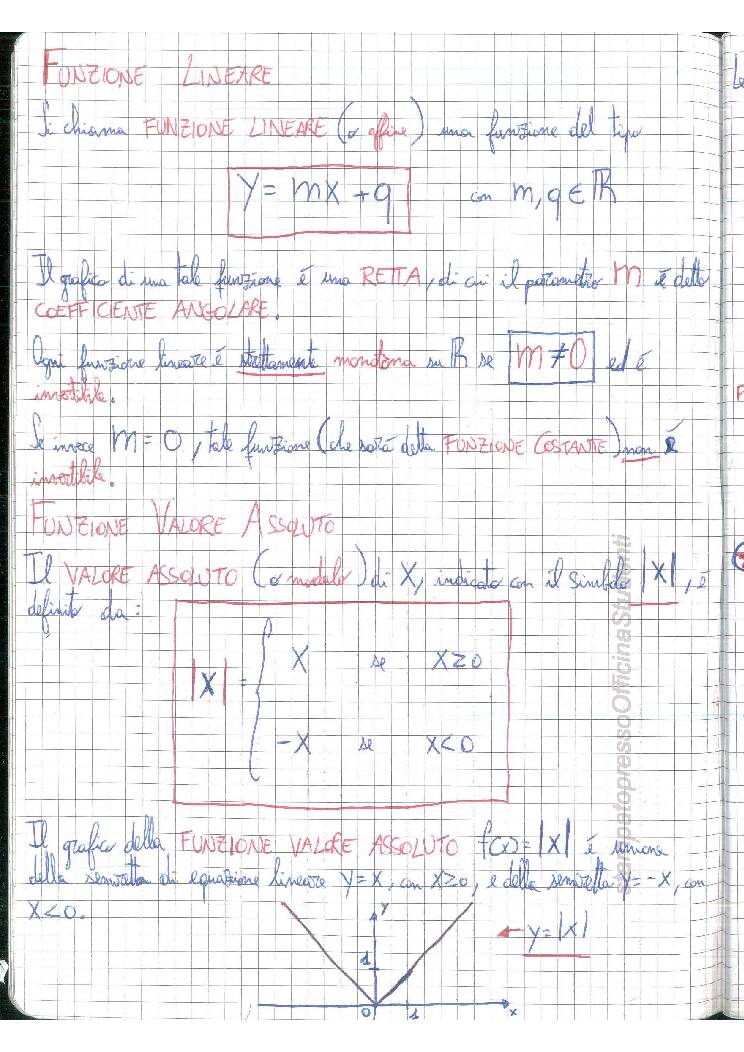 FUNZIONE LINEARE
Si chiama FUNZIONE LINEARE (o affine) una funzione del tipo
y = mx + q con m, q ∈ ℝ
Il grafico di una tale funzione é una RETTA, di cui il parametro m é detto
COEFFICIENTE ANGOLARE.
Ogni funzione lineare é strettamente monotona su ℝ se m ≠ 0 ed é
invertibile.
Se invece m = 0, tale funzione (che sará detta FUNZIONE COSTANTE) non é
invertibile.
FUNZIONE VALORE ASSOLUTO
Il VALORE ASSOLUTO (o modulo) di X, indicato con il simbolo |X|, é
definito da:
|X| = { X se X≥0
-X se X<0
Il grafico della FUNZIONE VALORE ASSOLUTO f(x) = |X| é unione
della semiretta di equazione lineare y=X, con X≥0, e della semiretta y=-X, con
X<0.
y
y=|X|
1
0 1 x
stampatopressoOfficinaStudenti
Le